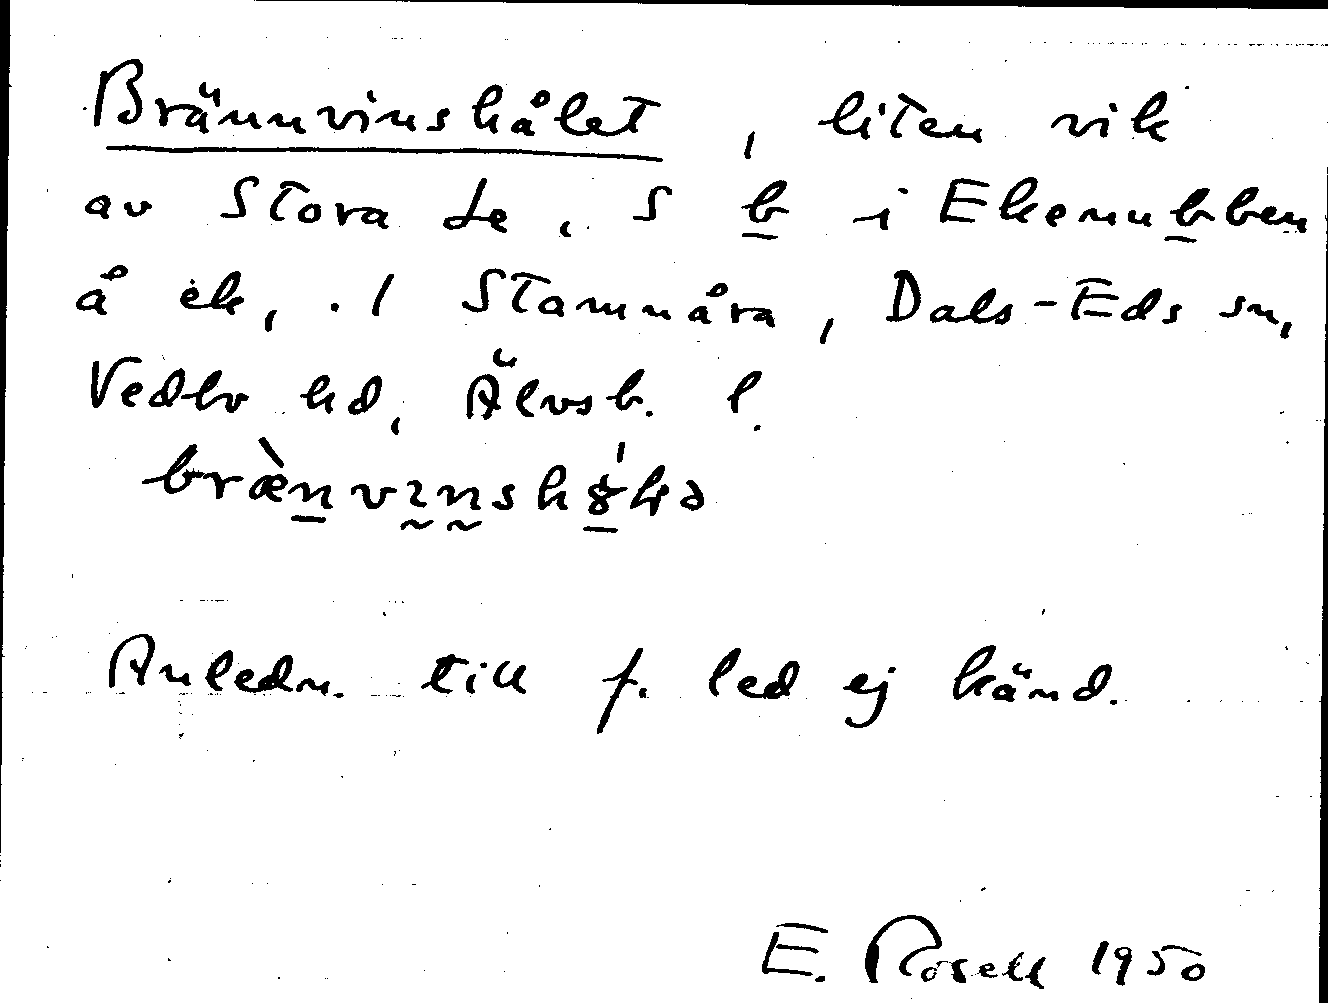 Brännvinshålet, liten vik
av Stora Le, S b i Ekenabben
å ek, . / Stommåra, Dals-Eds sn,
Vedbo hd, Älvsb. l.
Anledn. till f. led ej känd.
E. Rosell 1950